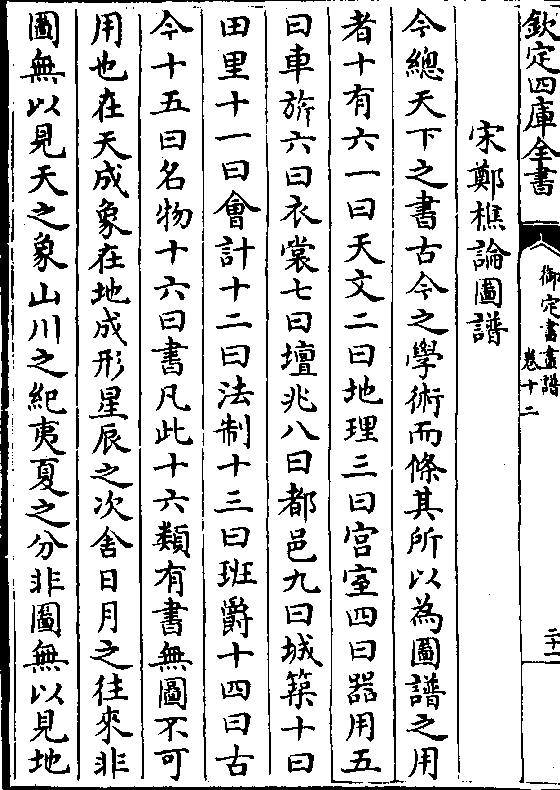 欽定四庫全書
御定書畫譜
卷十二
二十一
宋鄭樵論圖譜
今總天下之書古今之學術而條其所以為圖譜之用
者十有六一曰天文二曰地理三曰宫室四曰器用五
曰車旂六曰衣裳七曰壇兆八曰都邑九曰城築十曰
田里十一曰會計十二曰法制十三曰班爵十四曰古
今十五曰名物十六曰書凡此十六類有書無圖不可
用也在天成象在地成形星辰之次舍日月之往來非
圖無以見天之象山川之紀夷夏之分非圖無以見地